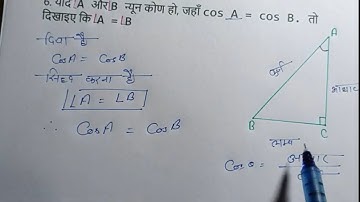 6. यदि ∠A और ∠B न्यून कोण हो, जहाँ cos A = cos B. तो
दिखाइए कि ∠A = ∠B
दिया है
CosA = CosB
सिद्ध करना है
∠A = ∠B
∴ CosA = CosB
A
कर्ण
आधार
B
C
लम्ब
Cosθ = आधार